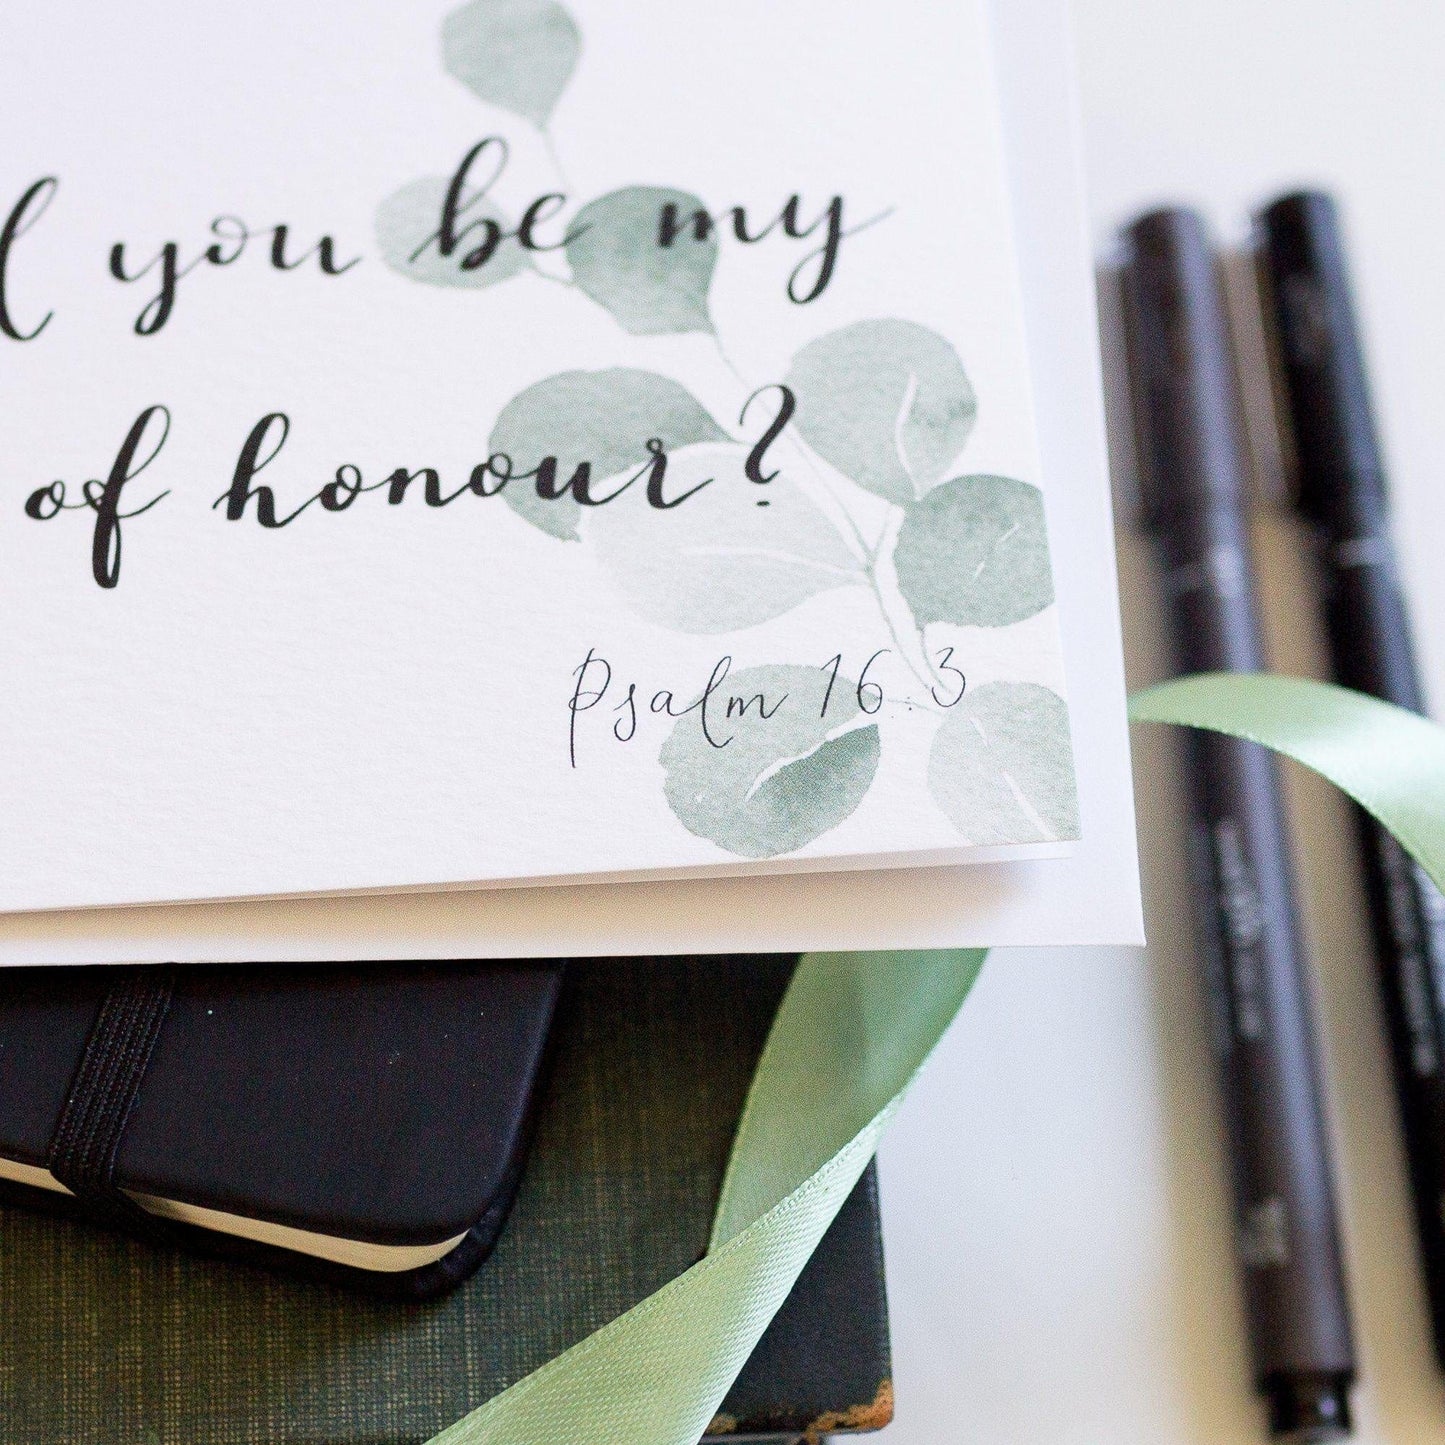 l you be my
of honour?
Psalm 16:3